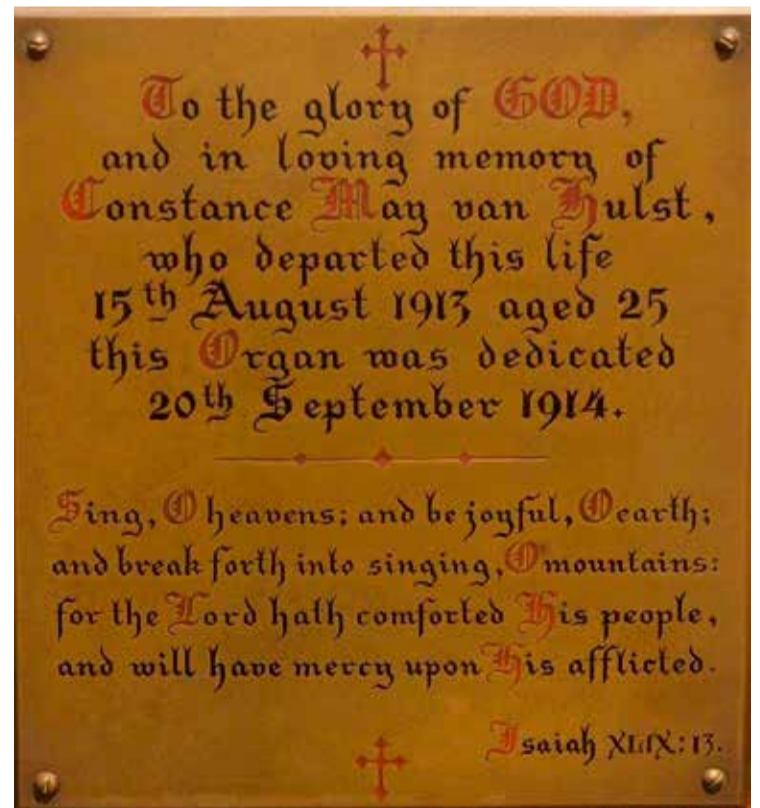 To the glory of GOD,
and in loving memory of
Constance May van Hulst,
who departed this life
15th August 1913 aged 25
this Organ was dedicated
20th September 1914.
Sing, O heavens; and be joyful, O earth;
and break forth into singing, O mountains:
for the Lord hath comforted His people,
and will have mercy upon His afflicted.
Isaiah XLIX: 13.